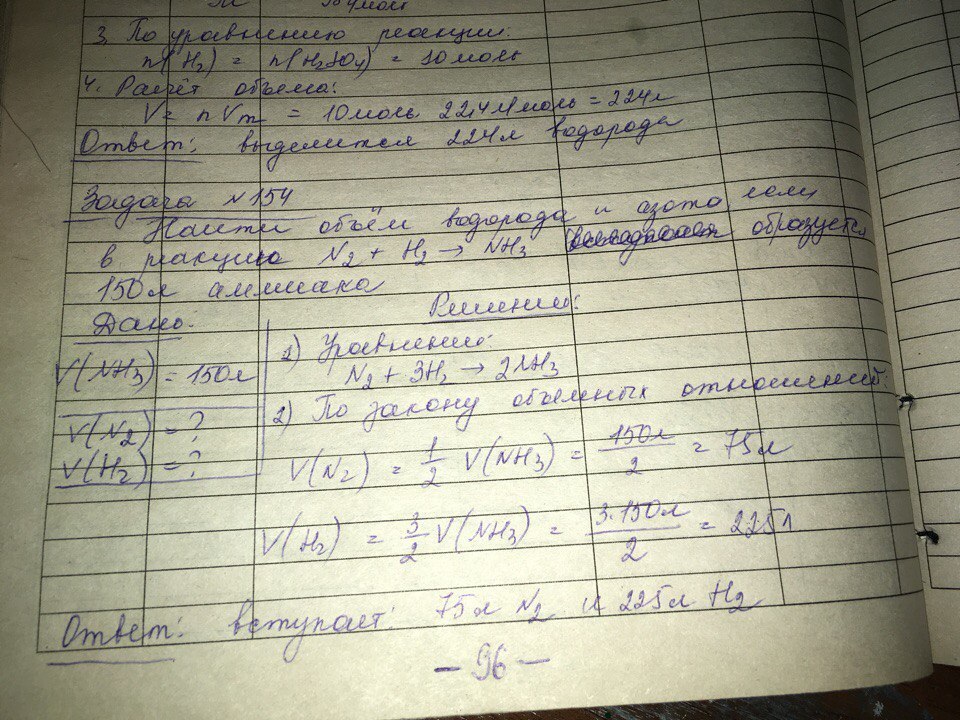 3. По уравнению реакции:
n(H₂) = n(H₂SO₄) = 10 моль
4. Расчёт объема:
V = n Vm = 10 моль · 22,4 л/моль = 224 л
Ответ: выделится 224 л водорода
Задача №154
Найти объём водорода и азота если
в реакцию N₂ + H₂ → NH₃ образуется
150 л аммиака
Дано: Решение:
1) Уравнение:
V(NH₃) = 150 л N₂ + 3H₂ → 2NH₃
2) По закону объемных отношений:
V(N₂) = ? V(N₂) = 1/2 V(NH₃) = 150л/2 = 75 л
V(H₂) = ?
V(H₂) = 3/2 V(NH₃) = 3·150л/2 = 225 л
Ответ: вступает: 75 л N₂ и 225 л H₂
- 96 -